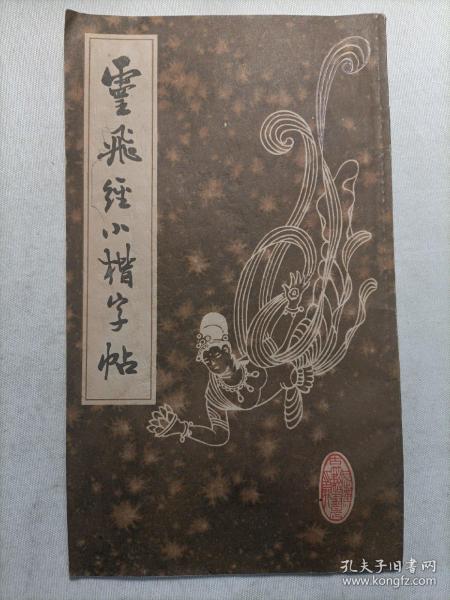 靈飛經小楷字帖
孔夫子旧书网
www.kongfz.com